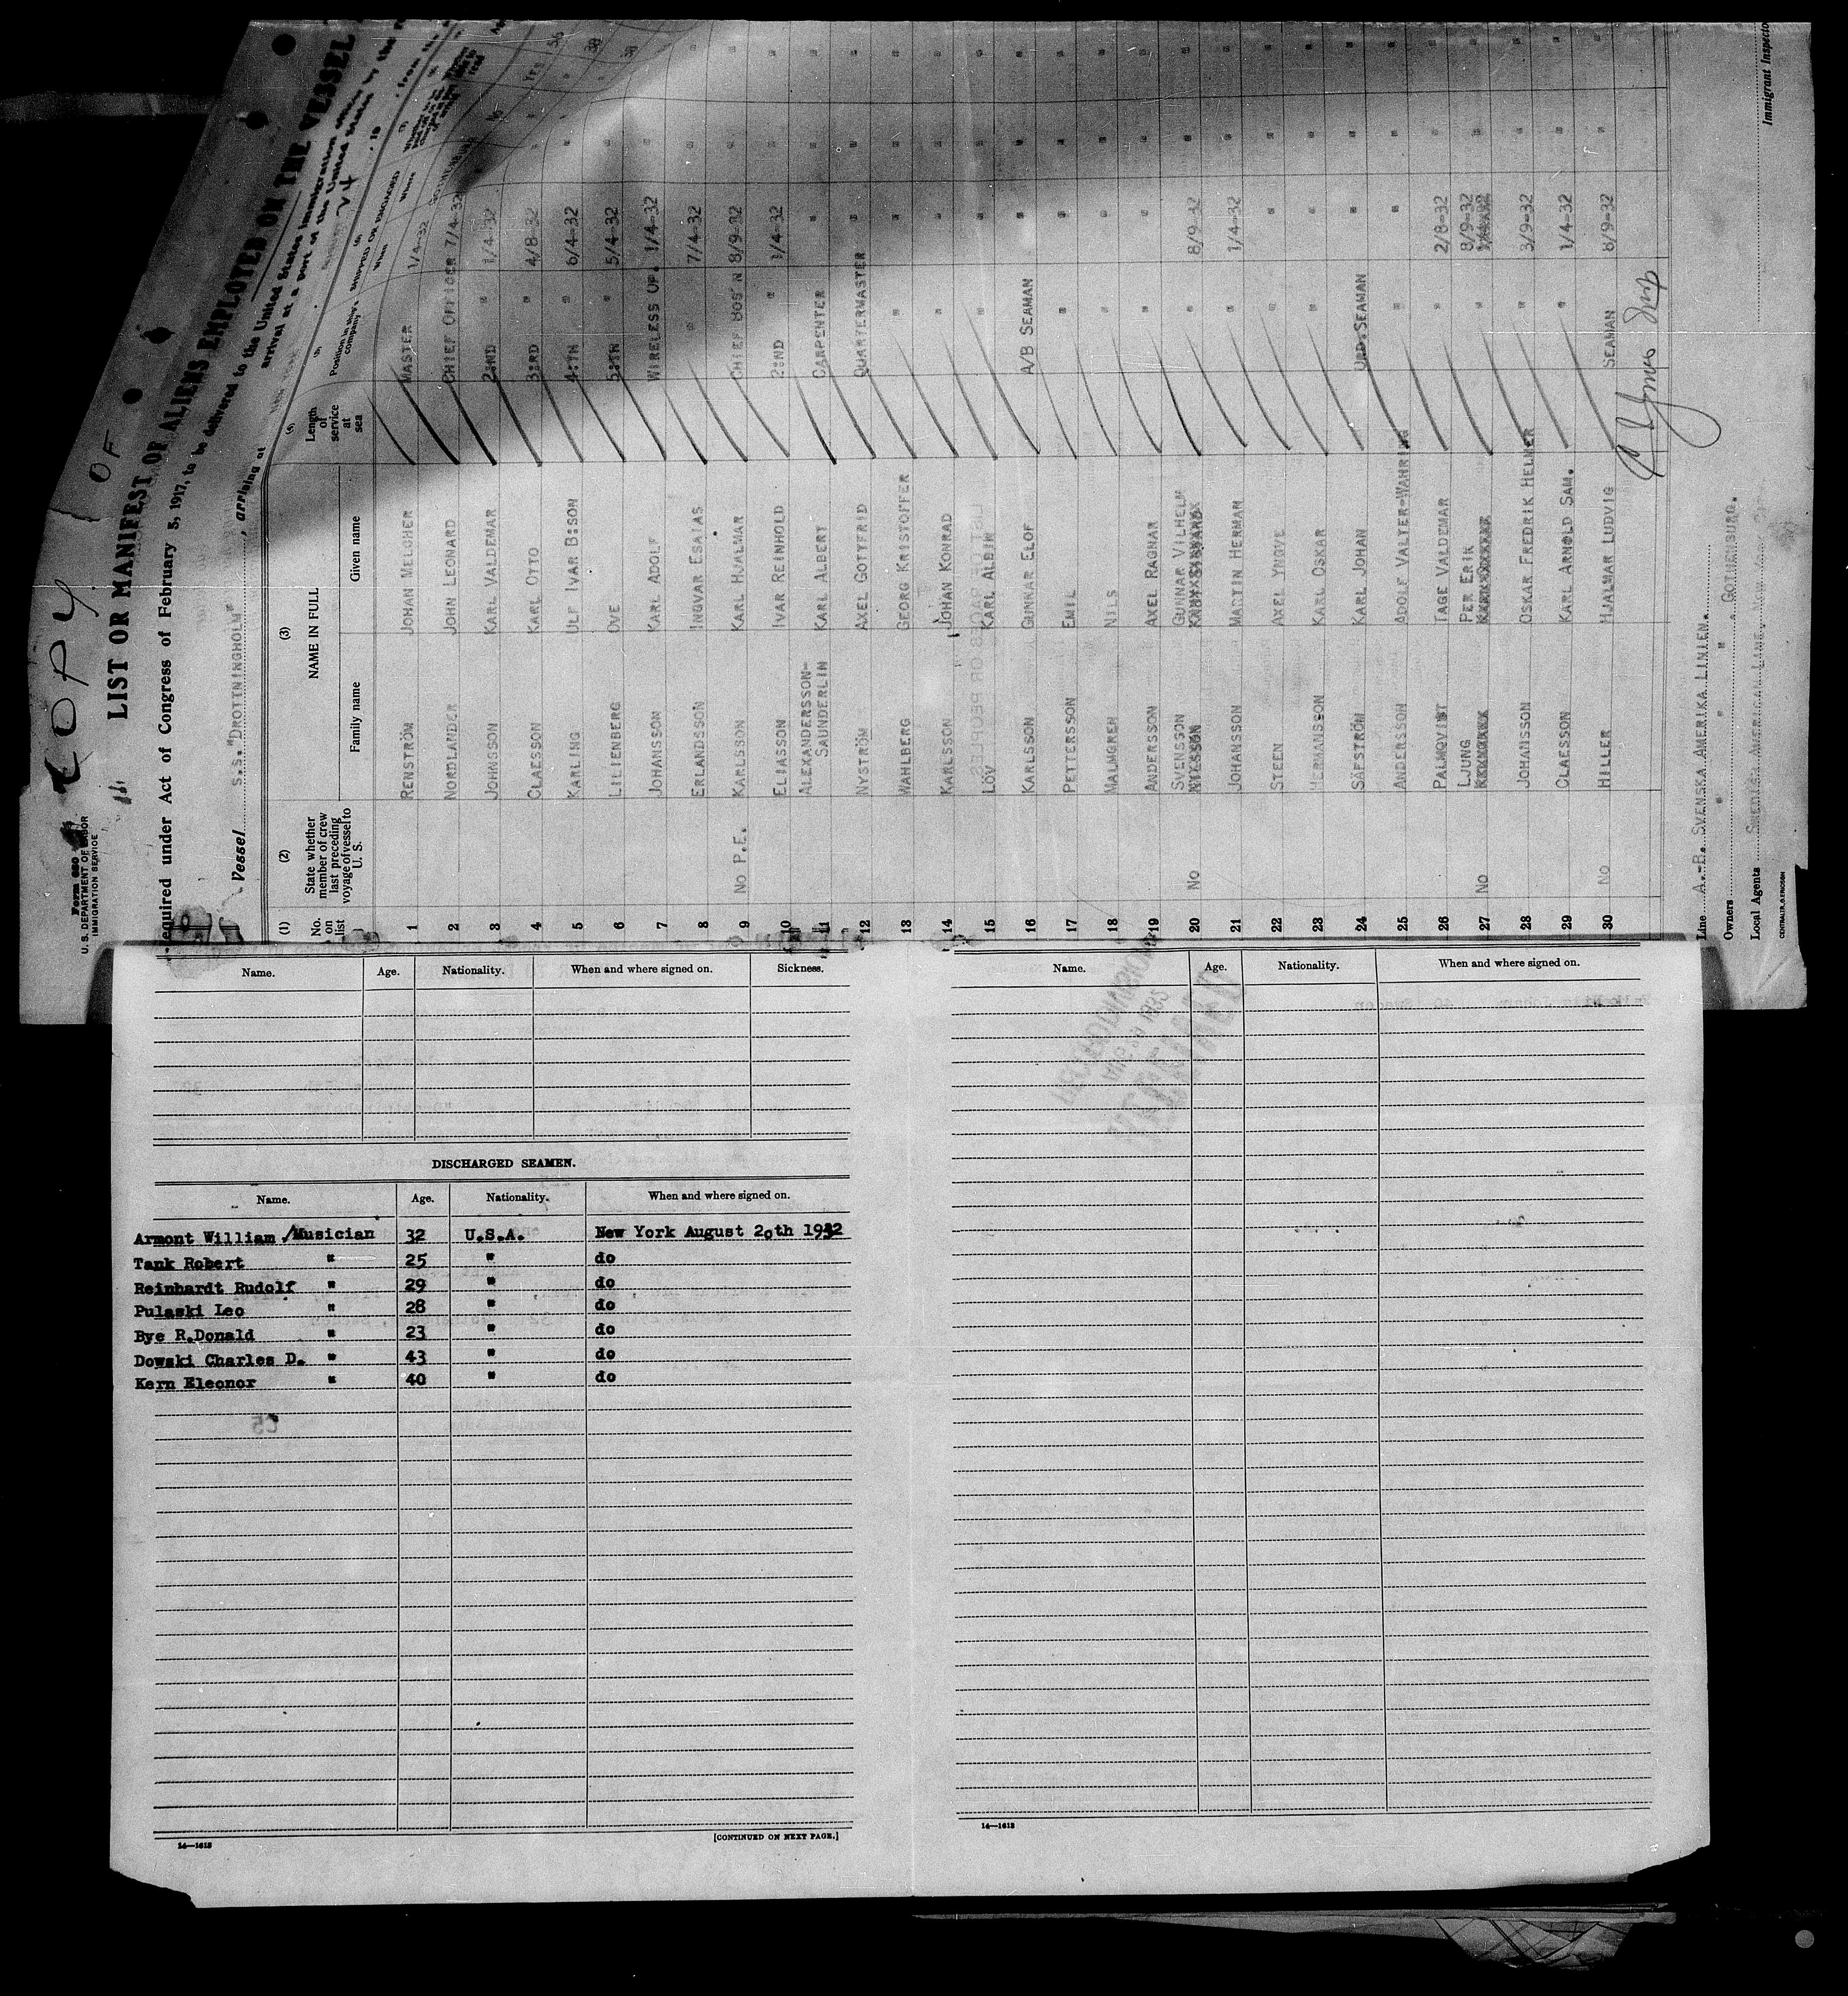 COPY OF
Form 680
U. S. DEPARTMENT OF LABOR
IMMIGRATION SERVICE
LIST OR MANIFEST OF ALIENS EMPLOYED ON THE VESSEL
Required under Act of Congress of February 5, 1917, to be delivered to the United States immigration officer by the
arrival at a port of the United States
Vessel S.S."DROTTNINGHOLM", arriving at
(1) (2) (3)
No. on list
State whether member of crew last preceding voyage of vessel to U. S.
NAME IN FULL
Family name Given name
Length of service at sea
Position in ship's company
SHIPPED OR ENGAGED
When Where
1 RENSTRÖM JOHAN MELCHER MASTER 1/4-32
2 NORDLANDER JOHN LEONARD CHIEF OFFICER 7/4-32
3 JOHNSSON KARL VALDEMAR 2:ND " 1/4-32
4 CLAESSON KARL OTTO 3:RD " 4/8-32
5 KARLING ULF IVAR B:SON 4:TH " 6/4-32
6 LILIENBERG OVE 5:TH " 5/4-32
7 JOHANSSON KARL ADOLF WIRELESS OP. 1/4-32
8 ERLANDSSON INGVAR ESAIAS " 7/4-32
9 No P.E. KARLSSON KARL HJALMAR CHIEF BOS'N 8/9-32
10 ELIASSON IVAR REINHOLD 2:ND " 1/4-32
11 ALEXANDERSSON-
SAUNDERLIN KARL ALBERT CARPENTER "
12 NYSTRÖM AXEL GOTTFRID QUARTERMASTER "
13 WAHLBERG GEORG KRISTOFFER " "
14 KARLSSON JOHAN KONRAD " "
15 LÖV KARL ALBIN " "
16 KARLSSON GUNNAR ELOF A/B SEAMAN "
17 PETTERSSON EMIL " "
18 MALMGREN NILS " "
19 ANDERSSON AXEL RAGNAR " "
20 No SVENSSON GUNNAR VILHELM " 8/9-32
21 JOHANSSON MARTIN HERMAN " 1/4-32
22 STEEN AXEL YNGVE " "
23 HERMANSSON KARL OSKAR " "
24 SÄFSTRÖM KARL JOHAN ORD.SEAMAN "
25 ANDERSSON ADOLF VALTER-WAHRING " "
26 PALMQVIST TAGE VALDEMAR " 2/8-32
27 No LJUNG PER ERIK " 8/9-32
28 JOHANSSON OSKAR FREDRIK HELMER " 3/9-32
29 CLAESSON KARL ARNOLD SAM. " 1/4-32
30 No HILLER HJALMAR LUDVIG SEAMAN 8/9-32
Line A.-B. SVENSKA AMERIKA LINIEN.
Owners " " " GOTHENBURG.
Local Agents SWEDISH AMERICAN LINE, NEW
Immigrant Inspector
Name. Age. Nationality. When and where signed on. Sickness.
DISCHARGED SEAMEN.
Name. Age. Nationality. When and where signed on.
Armont William /Musician 32 U.S.A. New York August 20th 1932
Tank Robert " 25 " do
Reinhardt Rudolf " 29 " do
Pulaski Leo " 28 " do
Bye R.Donald " 23 " do
Dowski Charles D. " 43 " do
Kern Eleonor " 40 " do
14—1613
[CONTINUED ON NEXT PAGE.]
Name. Age. Nationality. When and where signed on.
14—1613